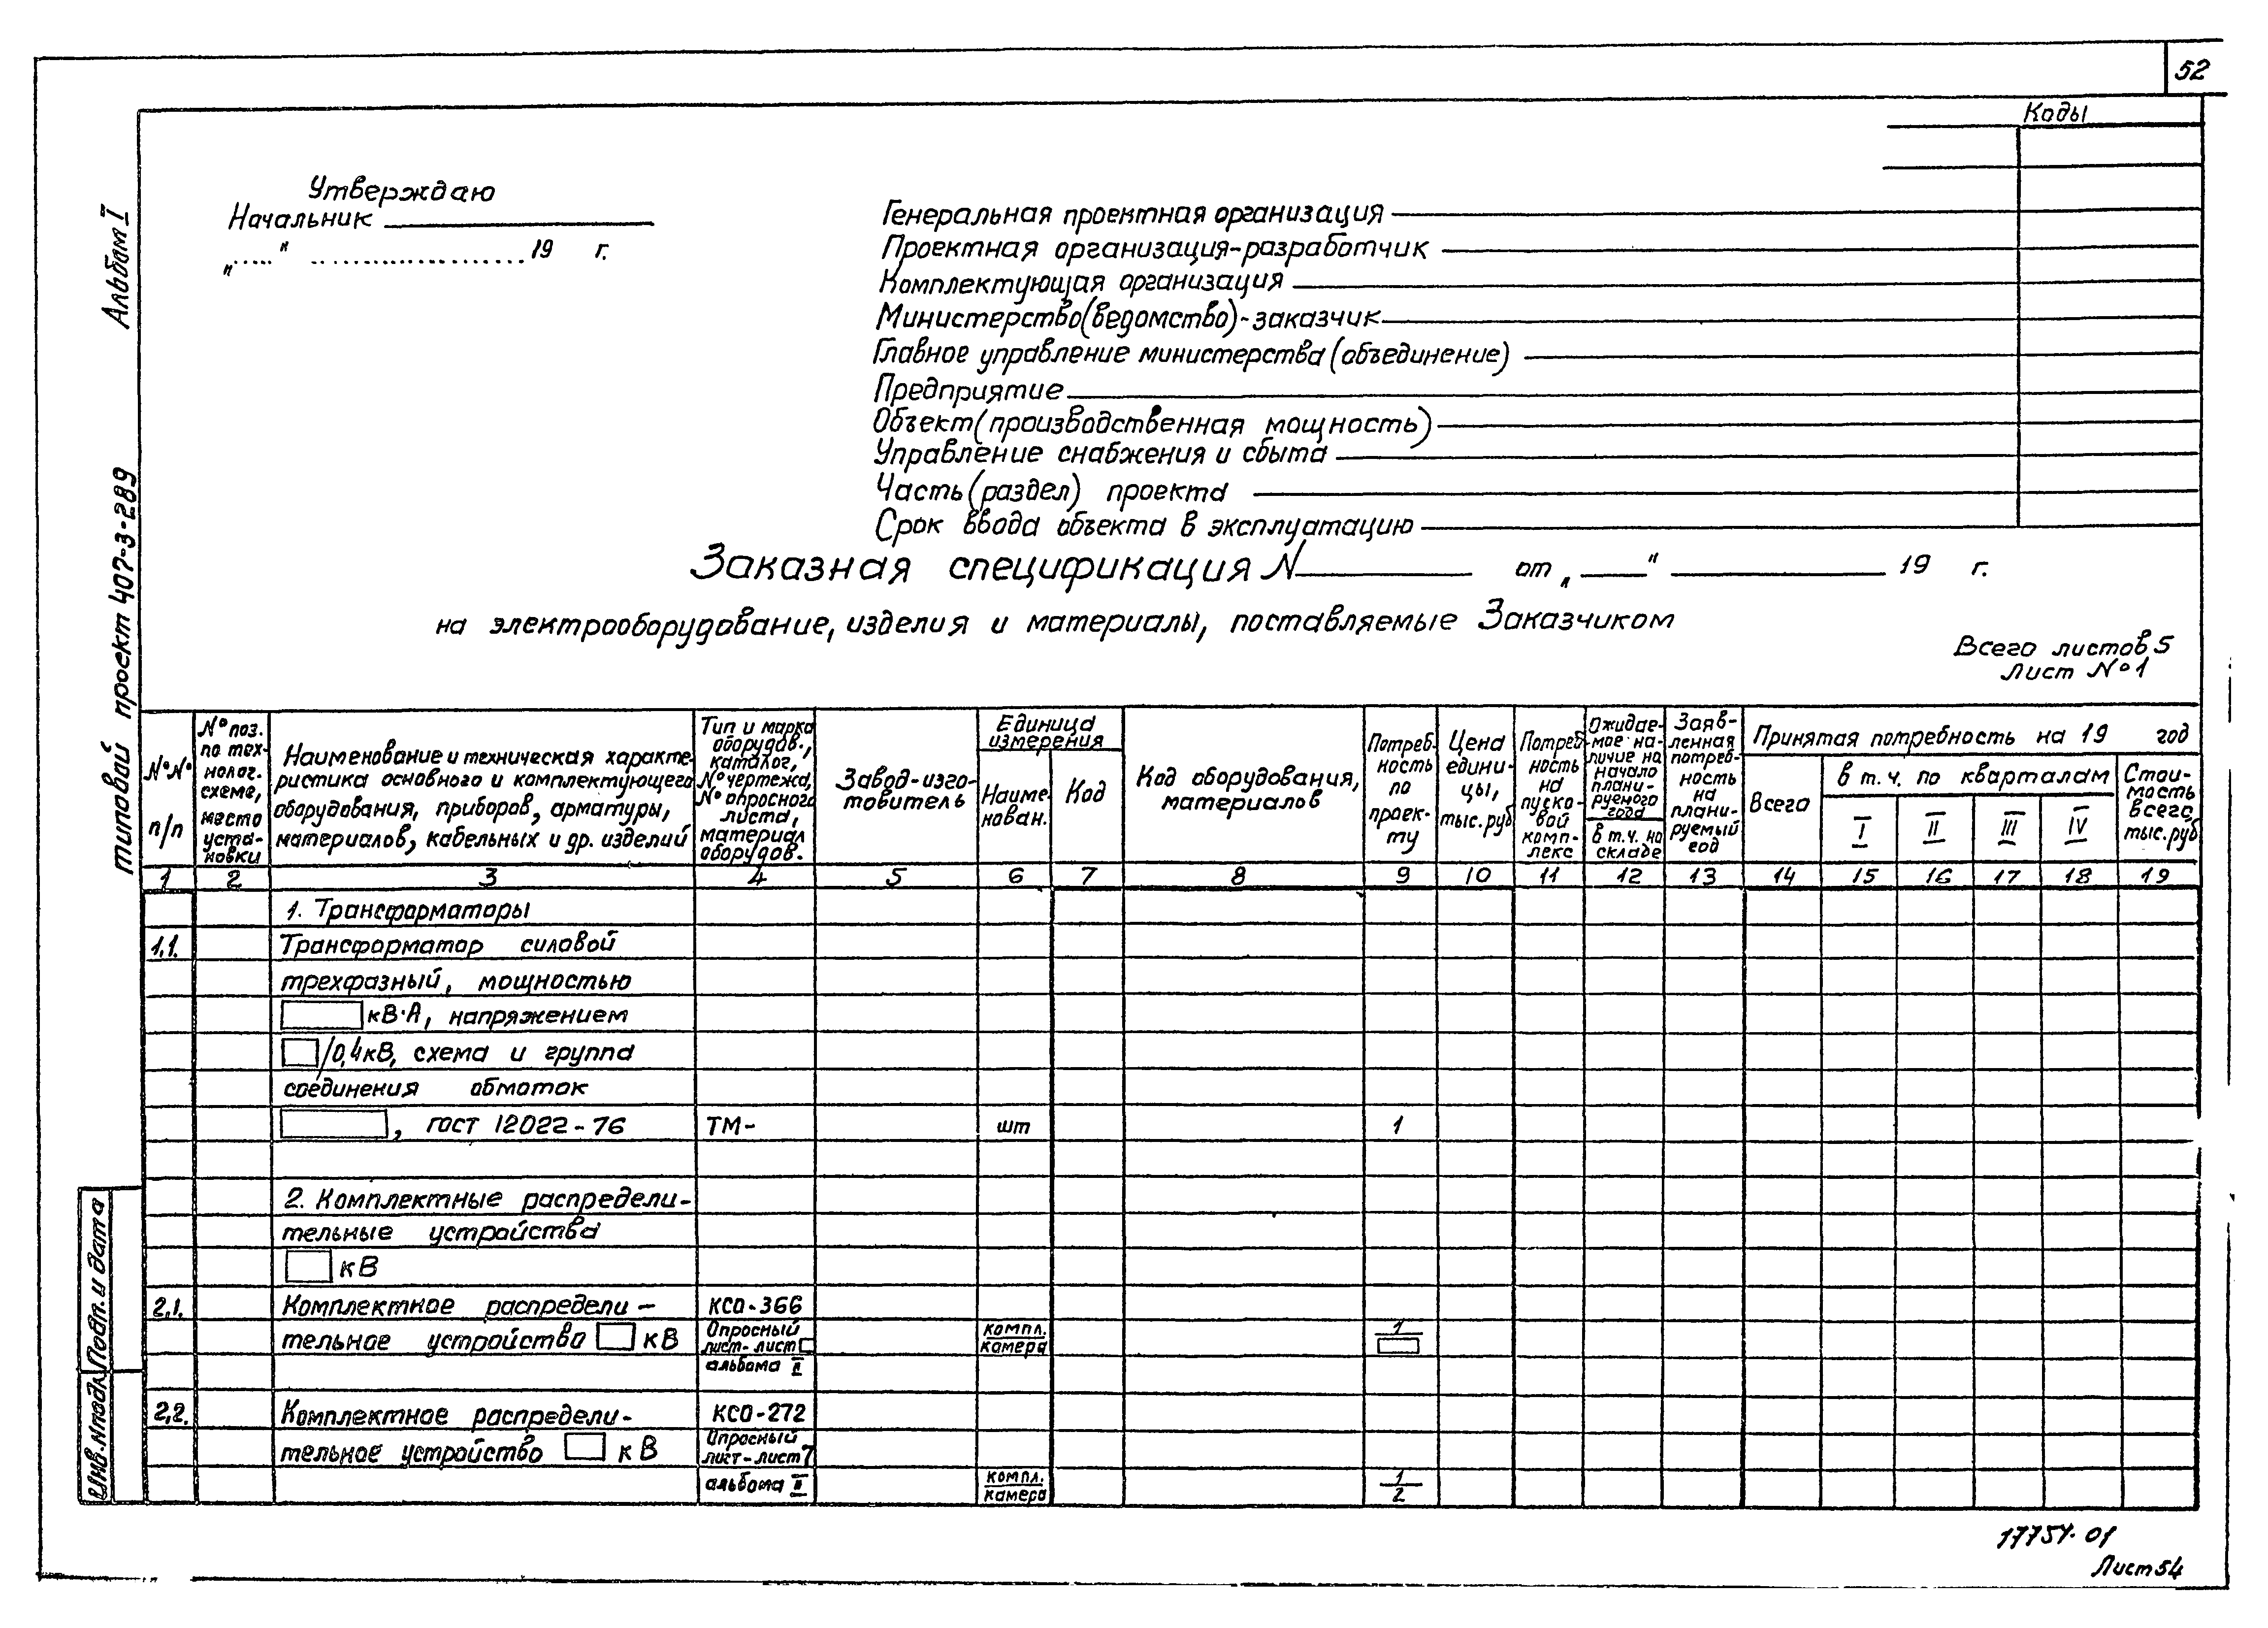 52
Коды
Утверждаю
Начальник
„....." 19 г.
Генеральная проектная организация
Проектная организация-разработчик
Комплектующая организация
Министерство(ведомство)-заказчик
Главное управление министерства(объединение)
Предприятие
Объект(производственная мощность)
Управление снабжения и сбыта
Часть(раздел) проекта
Срок ввода объекта в эксплуатацию
Заказная спецификация N от „ " 19 г.
на электрооборудование, изделия и материалы, поставляемые Заказчиком
Всего листов 5
Лист N°1
Альбом I
типовой проект 407-3-289
N°N° п/п
N° поз. по технолог. схеме, место установки
Наименование и техническая характе-
ристика основного и комплектующего
оборудования, приборов, арматуры,
материалов, кабельных и др. изделий
Тип и марка
оборудов.,
каталог,
N° чертежа,
N° опросного
листа,
материал
оборудов.
Завод-изго-
товитель
Единица
измерения
Наиме-
нован.
Код
Код оборудования,
материалов
Потреб-
ность
по
проек-
ту
Цена
едини-
цы,
тыс.руб
Потреб-
ность
на
пуско-
вой
комп-
лекс
Ожидае-
мое на-
личие на
начало
плани-
руемого
года
в т.ч. на
складе
Заяв-
ленная
потреб-
ность
на
плани-
руемый
год
Принятая потребность на 19 год
Всего
в т.ч. по кварталам
I II III IV
Стои-
мость
всего,
тыс.руб
1 2 3 4 5 6 7 8 9 10 11 12 13 14 15 16 17 18 19
1. Трансформаторы
1.1. Трансформатор силовой
трехфазный, мощностью
кВ·А, напряжением
/0,4кВ, схема и группа
соединения обмоток
, гост 12022-76 ТМ- шт 1
2. Комплектные распредели-
тельные устройства
кВ
2.1. Комплектное распредели- КСО-366
тельное устройство кВ Опросный
лист-лист
компл.
камера
1
альбома II
2.2. Комплектное распредели- КСО-272
тельное устройство кВ Опросный
лист-лист 7
альбома II
компл.
камера
1
2
Подп. и дата
Инв.N подл.
17754-01
Лист 54